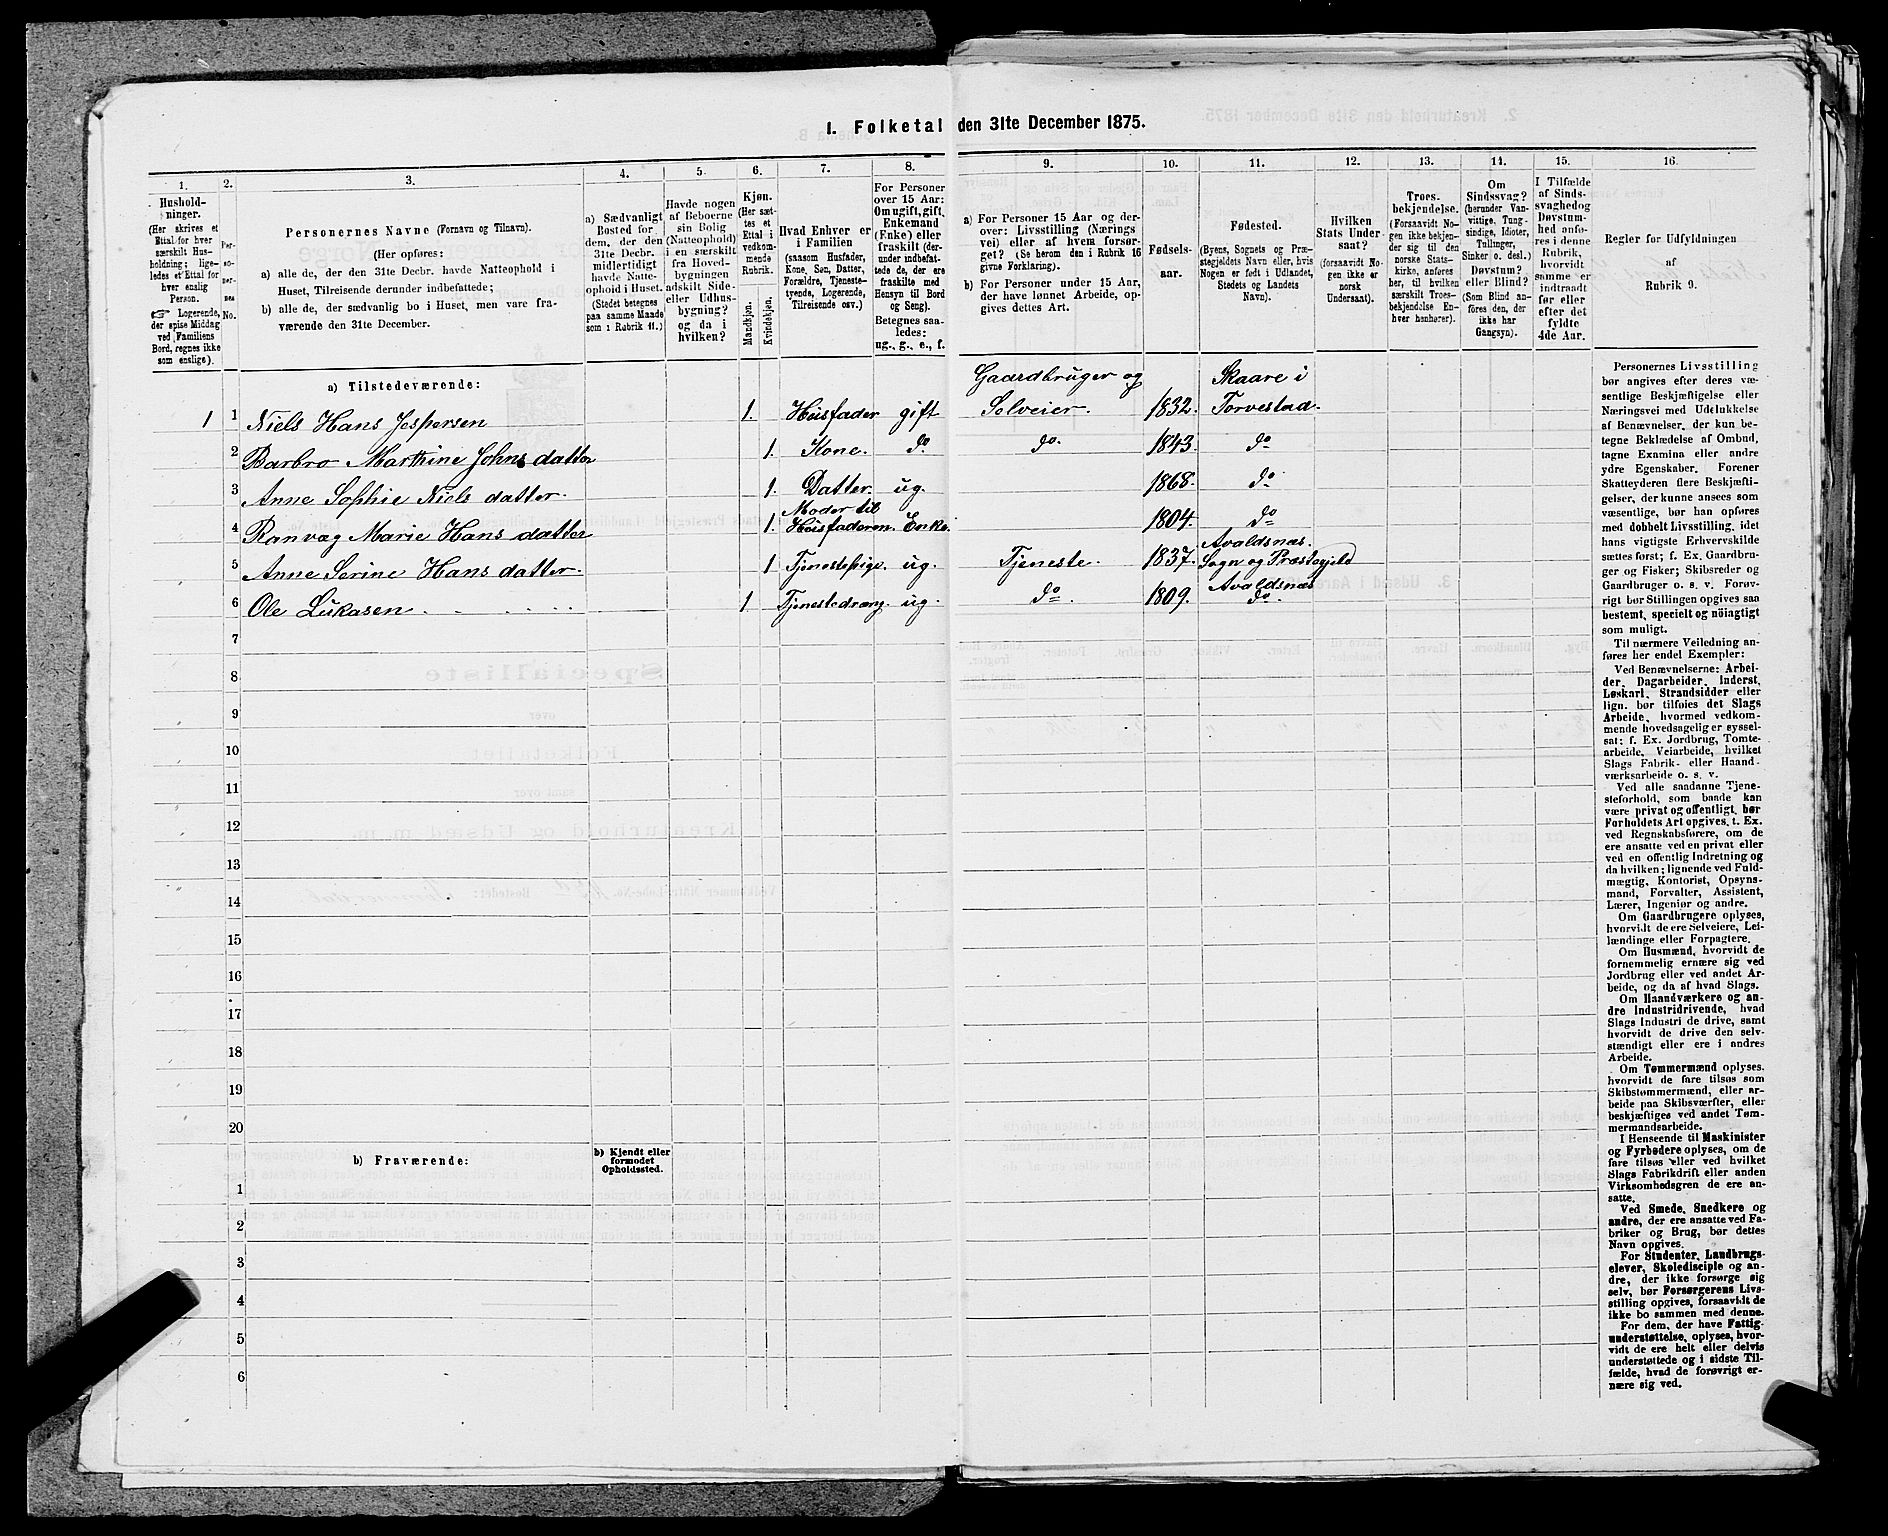 1. Folketal den 31te December 1875.
1.
2.
3.
4.
5.
6.
7.
8.
9.
10.
11.
12.
13.
14.
15.
16.
Hushold-
ninger.
(Her skrives et
Ettal for hver
særskilt Hus-
holdning; lige-
ledes et Ettal for
hver enslig
Person.
☞ Logerende,
der spise Middag
ved Familiens
Bord, regnes ikke
som enslige).
Per-
so-
ner-
nes
No.
Personernes Navne (Fornavn og Tilnavn).
(Her opføres:
a) alle de, der den 31te Decbr. havde Natteophold i
Huset, Tilreisende derunder indbefattede;
b) alle de, der sædvanlig bo i Huset, men vare fra-
værende den 31te December.
a) Sædvanligt
Bosted for
dem, der den
31te Decbr.
midlertidigt
havde Natte-
ophold i Huset.
(Stedet betegnes
paa samme Maade
som i Rubrik 11.)
Havde nogen
af Beboerne
sin Bolig
(Natteophold)
i en særskilt
fra Hoved-
bygningen
adskilt Side-
eller Udhus-
bygning?
og da i
hvilken?
Kjøn.
(Her sæt-
tes et
Ettal i
vedkom-
mende
Rubrik.
Mandkjøn.
Kvindekjøn.
Hvad Enhver er
i Familien
(saasom Husfader,
Kone, Søn, Datter,
Forældre, Tjeneste-
tyende, Logerende,
Tilreisende osv.)
For Personer
over 15 Aar:
Om ugift, gift,
Enkemand
(Enke) eller
fraskilt (der-
under indbefat-
tede de, der ere
fraskilte med
Hensyn til Bord
og Seng).
Betegnes saa-
ledes:
ug., g., e., f.
a) For Personer 15 Aar og der-
over: Livsstilling (Nærings
vei) eller af hvem forsør-
get? (Se herom den i Rubrik 16
givne Forklaring).
b) For Personer under 15 Aar,
der have lønnet Arbeide, op-
gives dettes Art.
Fødsels-
aar.
Fødested.
(Byens, Sognets og Præ-
stegjeldets Navn eller, hvis
Nogen er født i Udlandet,
Stedets og Landets
Navn).
Hvilken
Stats Under-
saat?
(forsaavidt No-
gen ikke er
norsk
Undersaat).
Troes-
bekjendelse.
(Forsaavidt No-
gen ikke bekjen-
der sig til den
norske Stats-
kirke, anføres
her, til hvilken
særskilt Troes-
bekjendelse En-
hver henhører).
Om
Sindssvag?
(herunder Van-
vittige, Tung-
sindige, Idioter,
Tullinger,
Sinker o. desl.)
Døvstum?
eller Blind?
(Som Blind an-
føres den, der
ikke har
Gangsyn).
I Tilfælde
af Sinds-
svaghed og
Døvstum-
hed anfø-
res i denne
Rubrik,
hvorvidt
samme er
indtraadt
før eller
efter det
fyldte
4de Aar.
Regler for Udfyldningen
af
Rubrik 9.
a) Tilstedeværende:
Gaardbruger og Skaare i
1 1 Niels Hans Jespersen 1. Husfader gift Selveier. 1832. Torvestad.
2 Barbro Marthine Johnsdatter 1. Kone. do. do. 1843. do
3 Anne Sophie Nielsdatter. 1. Datter. ug. 1868. do
Moder til
4 Ranvag Marie Hansdatter 1. Husfaderen. Enke. 1804. do
Avaldsnæs.
5 Anne Serine Hansdatter. 1 Tjenestepige. ug. Tjeneste. 1837. Sogn og Præstegjeld
Avaldsnæs
6 Ole Lukasen . . . . . . . 1 Tjenestedreng. ug. do. 1809. do.
7
8
9
10
11
12
13
14
15
16
17
18
19
20
b) Fraværende:
b) Kjendt eller
formodet
Opholdssted.
1
2
3
4
5
6
Personernes Livsstilling
bør angives efter deres væ-
sentlige Beskjæftigelse eller
Næringsvei med Udelukkelse
af Benævnelser, der kun be-
tegne Beklædelse af Ombud,
tagne Examina eller andre
ydre Egenskaber. Forener
Skatteyderen flere Beskjæfti-
gelser, der kunne ansees som
væsentlige, bør han opføres
med dobbelt Livsstilling, idet
hans vigtigste Erhvervskilde
sættes først; f. Ex. Gaardbru-
ger og Fisker; Skibsreder og
Gaardbruger o. s. v. Forøv-
rigt bør Stillingen opgives saa
bestemt, specielt og nøiagtigt
som muligt.
Til nærmere Veiledning an-
føres her endel Exempler:
Ved Benævnelserne: Arbei-
der, Dagarbeider, Inderst,
Løskarl, Strandsidder eller
lign. bør tilføies det Slags
Arbeide, hvormed vedkom-
mende hovedsagelig er syssel-
sat; f. Ex. Jordbrug, Tomte-
arbeide, Veiarbeide, hvilket
Slags Fabrik- eller Haand-
værksarbeide o. s. v.
Ved alle saadanne Tjene-
steforhold, som baade kan
være privat og offentligt, bør
Forholdets Art opgives, t. Ex.
ved Regnskabsførere, om de
ere ansatte ved en privat eller
ved en offentlig Indretning og
da hvilken; lignende ved Fuld-
mægtig, Kontorist, Opsyns-
mand, Forvalter, Assistent,
Lærer, Ingeniør og andre.
Om Gaardbrugere oplyses,
hvorvidt de ere Selveiere, Lei-
lændinge eller Forpagtere.
Om Husmænd, hvorvidt de
fornemmelig ernære sig ved
Jordbrug eller ved andet Ar-
beide, og da af hvad Slags.
Om Haandværkere og an-
dre Industridrivende, hvad
Slags Industri de drive, samt
hvorvidt de drive den selv-
stændigt eller ere i andres
Arbeide.
Om Tømmermænd oplyses.
hvorvidt de fare tilsøs som
Skibstømmermænd, eller ar-
beide paa Skibsværfter, eller
beskjæftiges ved andet Tøm-
mermandsarbeide.
I Henseende til Maskinister
og Fyrbødere oplyses, om de
fare tilsøs eller ved hvilket
Slags Fabrikdrift eller anden
Virksomhedsgren de ere an-
satte.
Ved Smede, Snedkere og
andre, der ere ansatte ved Fa-
briker og Brug, bør dettes
Navn opgives.
For Studenter, Landbrugs-
elever, Skoledisciple og an-
dre, der ikke forsørge sig
selv, bør Forsørgerens Livs-
stilling opgives, forsaavidt de
ikke bo sammen med denne.
For dem, der have Fattig-
understøttelse, oplyses, hvor-
vidt de ere helt eller delvis
understøttede og i sidste Til-
fælde, hvad de forøvrigt er-
nære sig ved.